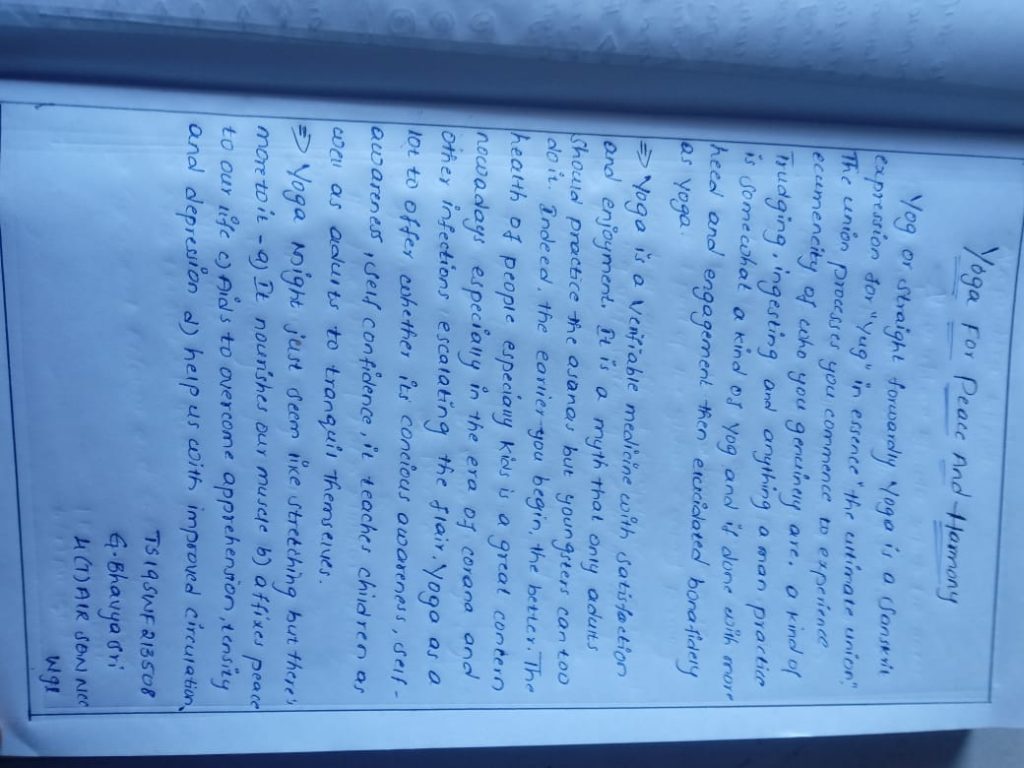 Yoga For Peace And Harmony
Yog or straight forwardly Yoga is a Sanskrit
expression for "Yug" in essence "the ultimate union".
The union process you commence to experience
ecumenicity of who you genuinely are. a kind of
Trudging, ingesting and anything a man practice
is somewhat a kind of Yog and if done with more
heed and engagement then elucidated bonafidely
as Yoga.
⇒ Yoga is a Verifiable medicine with satisfaction
and enjoyment. It is a myth that only adults
should practice the asanas but youngsters can too
do it. Indeed, the earlier you begin, the better. The
health of people especially kids is a great contern
nowadays especially in the era of corana and
other infections escalating the flair. Yoga as a
lot to offer whether its concious awareness, self-
awareness, self confidence, it teaches children as
well as adults to tranquil themselves.
⇒ Yoga might just seem like stretching but there's
more to it - a) It nourishes our muscle b) affixes peace
to our life c) Aids to overcome apprehension, tensity
and depression d) help us with improved circulation.
TS19SWF213508
G. Bhavyasri
4 (T) AIR SQN NCC
Wgl